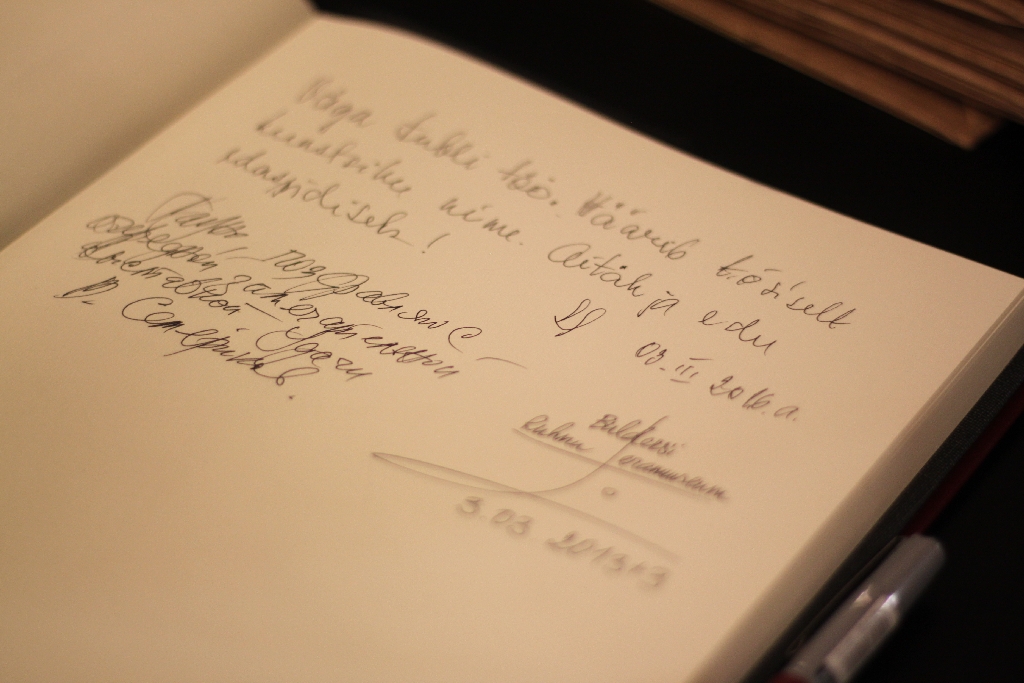 Väga tubli töö. Väärib tõsiselt
kunstniku nime. Aitäh ja edu
edaspidiseks!
03. III 2016.a.
поздравляю с
замечательной
выставкой Удачи
В.
Ruhnu
3.03 2013+3